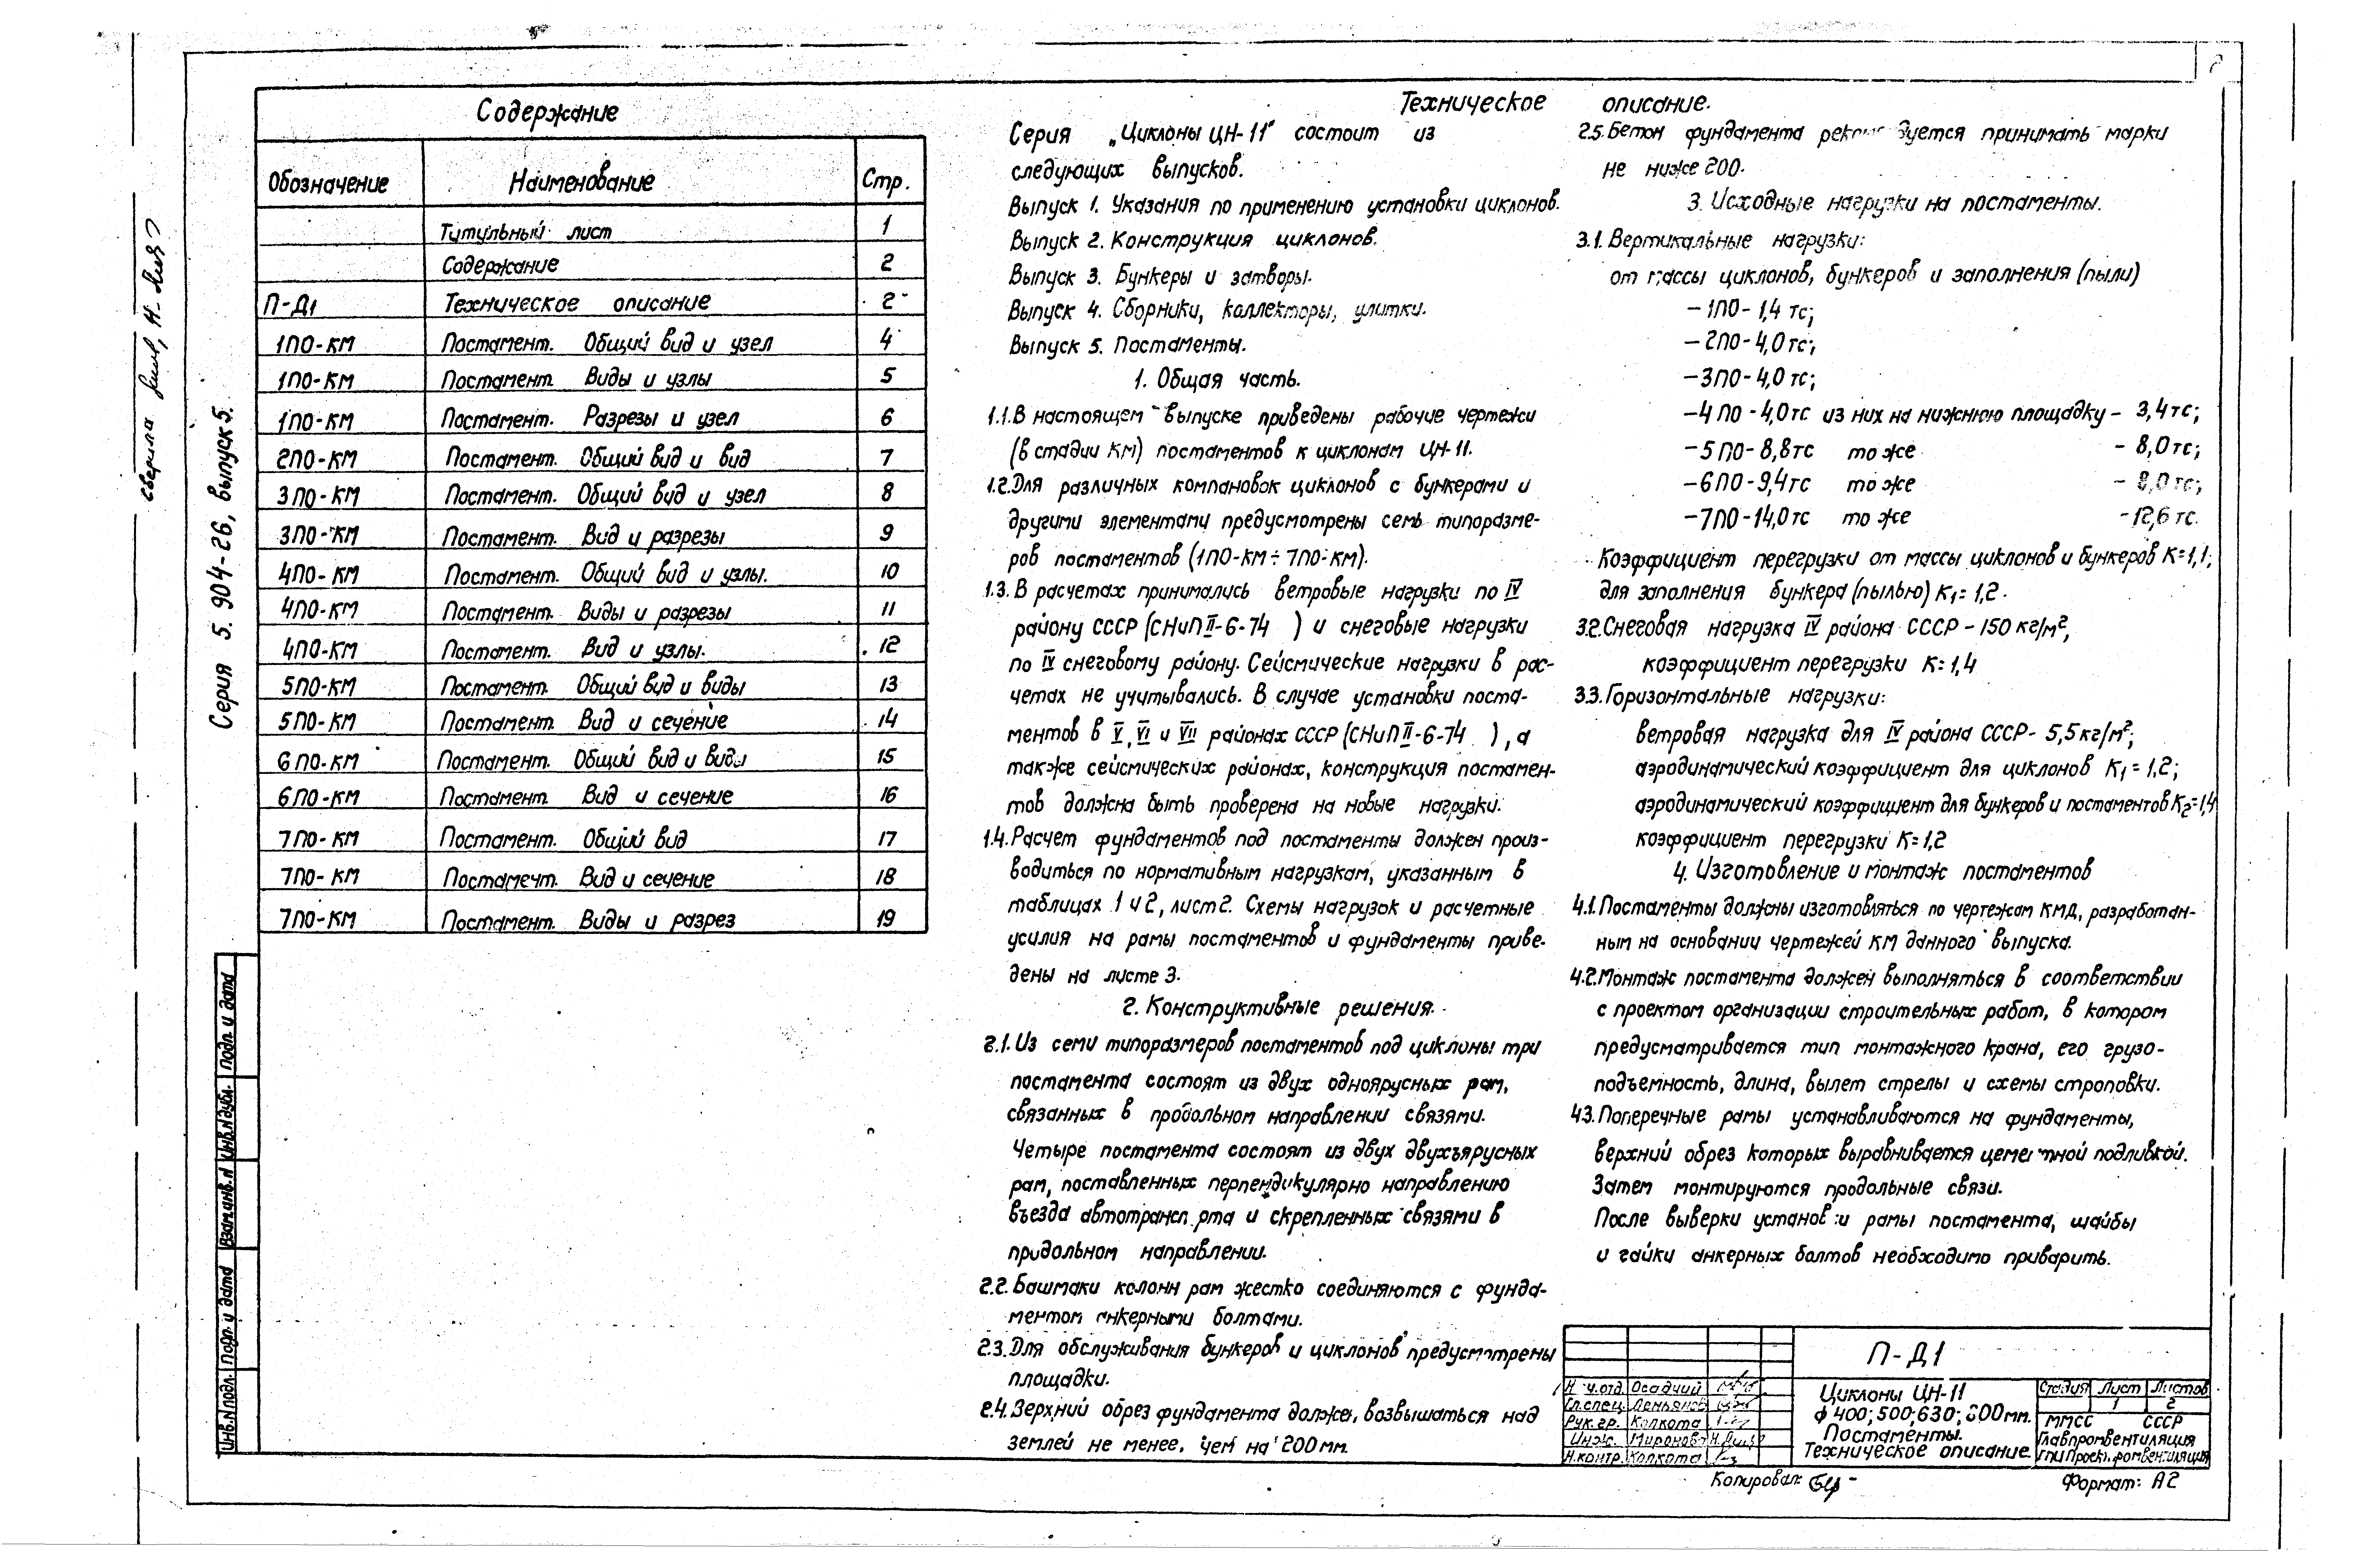 2
Содержание
Обозначение Наименование Стр.
Титульный лист 1
Содержание 2
П-Д1 Техническое описание 2
1ПО-КМ Постамент. Общий вид и узел 4
1ПО-КМ Постамент. Виды и узлы 5
1ПО-КМ Постамент. Разрезы и узел 6
2ПО-КМ Постамент. Общий вид и вид 7
3ПО-КМ Постамент. Общий вид и узел 8
3ПО-КМ Постамент. Вид и разрезы 9
4ПО-КМ Постамент. Общий вид и узлы. 10
4ПО-КМ Постамент. Виды и разрезы 11
4ПО-КМ Постамент. Вид и узлы. 12
5ПО-КМ Постамент. Общий вид и виды 13
5ПО-КМ Постамент. Вид и сечение 14
6ПО-КМ Постамент. Общий вид и виды 15
6ПО-КМ Постамент. Вид и сечение 16
7ПО-КМ Постамент. Общий вид 17
7ПО-КМ Постамент. Вид и сечение 18
7ПО-КМ Постамент. Виды и разрез 19
Серия 5.904-26, выпуск 5.
сверила
Инв.N подл. Подп. и дата Взам.инв.N Инв.N дубл. Подп. и дата
Техническое описание.
Серия „Циклоны ЦН-11" состоит из
следующих выпусков.
Выпуск 1. Указания по применению установки циклонов.
Выпуск 2. Конструкция циклонов.
Выпуск 3. Бункеры и затворы.
Выпуск 4. Сборники, коллекторы, улитки.
Выпуск 5. Постаменты.
1. Общая часть.
1.1. В настоящем выпуске приведены рабочие чертежи
(в стадии КМ) постаментов к циклонам ЦН-11.
1.2. Для различных компановок циклонов с бункерами и
другими элементами предусмотрены семь типоразме-
ров постаментов (1ПО-КМ ÷ 7ПО-КМ).
1.3. В расчетах принимались ветровые нагрузки по IV
району СССР (СНиП II-6-74 ) и снеговые нагрузки
по IV снеговому району. Сейсмические нагрузки в рас-
четах не учитывались. В случае установки поста-
ментов в V, VI и VII районах СССР (СНиП II-6-74 ), а
также сейсмических районах, конструкция постамен-
тов должна быть проверена на новые нагрузки.
1.4. Расчет фундаментов под постаменты должен произ-
водиться по нормативным нагрузкам, указанным в
таблицах 1 и 2, лист 2. Схемы нагрузок и расчетные
усилия на рамы постаментов и фундаменты приве-
дены на листе 3.
2. Конструктивные решения.
2.1. Из семи типоразмеров постаментов под циклоны три
постамента состоят из двух одноярусных рам,
связанных в продольном направлении связями.
Четыре постамента состоят из двух двухъярусных
рам, поставленных перпендикулярно направлению
въезда автотрансп рта и скрепленных связями в
продольном направлении.
2.2. Башмаки колонн рам жестко соединяются с фунда-
ментом анкерными болтами.
2.3. Для обслуживания бункеров и циклонов предусмотрены
площадки.
2.4. Верхний обрез фундамента должен возвышаться над
землей не менее, чем на 200 мм.
2.5. Бетон фундамента рекомендуется принимать марки
не ниже 200.
3. Исходные нагрузки на постаменты.
3.1. Вертикальные нагрузки:
от массы циклонов, бункеров и заполнения (пыли)
- 1ПО - 1,4 тс;
- 2ПО - 4,0 тс;
- 3ПО - 4,0 тс;
- 4ПО - 4,0 тс из них на нижнюю площадку - 3,4 тс;
- 5ПО - 8,8 тс то же - 8,0 тс;
- 6ПО - 9,4 тс то же - 8,0 тс;
- 7ПО - 14,0 тс то же - 12,6 тс.
Коэффициент перегрузки от массы циклонов и бункеров К=1,1;
для заполнения бункера (пылью) К₁=1,2.
3.2. Снеговая нагрузка IV района СССР - 150 кг/м²,
коэффициент перегрузки К=1,4
3.3. Горизонтальные нагрузки:
ветровая нагрузка для IV района СССР - 5,5 кг/м²;
аэродинамический коэффициент для циклонов К₁=1,2;
аэродинамический коэффициент для бункеров и постаментов К₂=1,4
коэффициент перегрузки К=1,2
4. Изготовление и монтаж постаментов
4.1. Постаменты должны изготовляться по чертежам КМД, разработан-
ным на основании чертежей КМ данного выпуска.
4.2. Монтаж постамента должен выполняться в соответствии
с проектом организации строительных работ, в котором
предусматривается тип монтажного крана, его грузо-
подъемность, длина, вылет стрелы и схемы строповки.
4.3. Поперечные рамы устанавливаются на фундаменты,
верхний обрез которых выравнивается цементной подливкой.
Затем монтируются продольные связи.
После выверки установки рамы постамента, шайбы
и гайки анкерных болтов необходимо приварить.
П-Д1
Н ч.отд. Осадчий
Гл.спец. Демьянов
Рук.гр. Колкота
Инж. Миронова
Н.контр. Колкота
Циклоны ЦН-11
ф 400; 500; 630; 800 мм.
Постаменты.
Техническое описание.
Стадия Лист Листов
1 2
ММСС СССР
Главпромвентиляция
ГПИ Проектпромвентиляция
Копировал:
Формат: А2